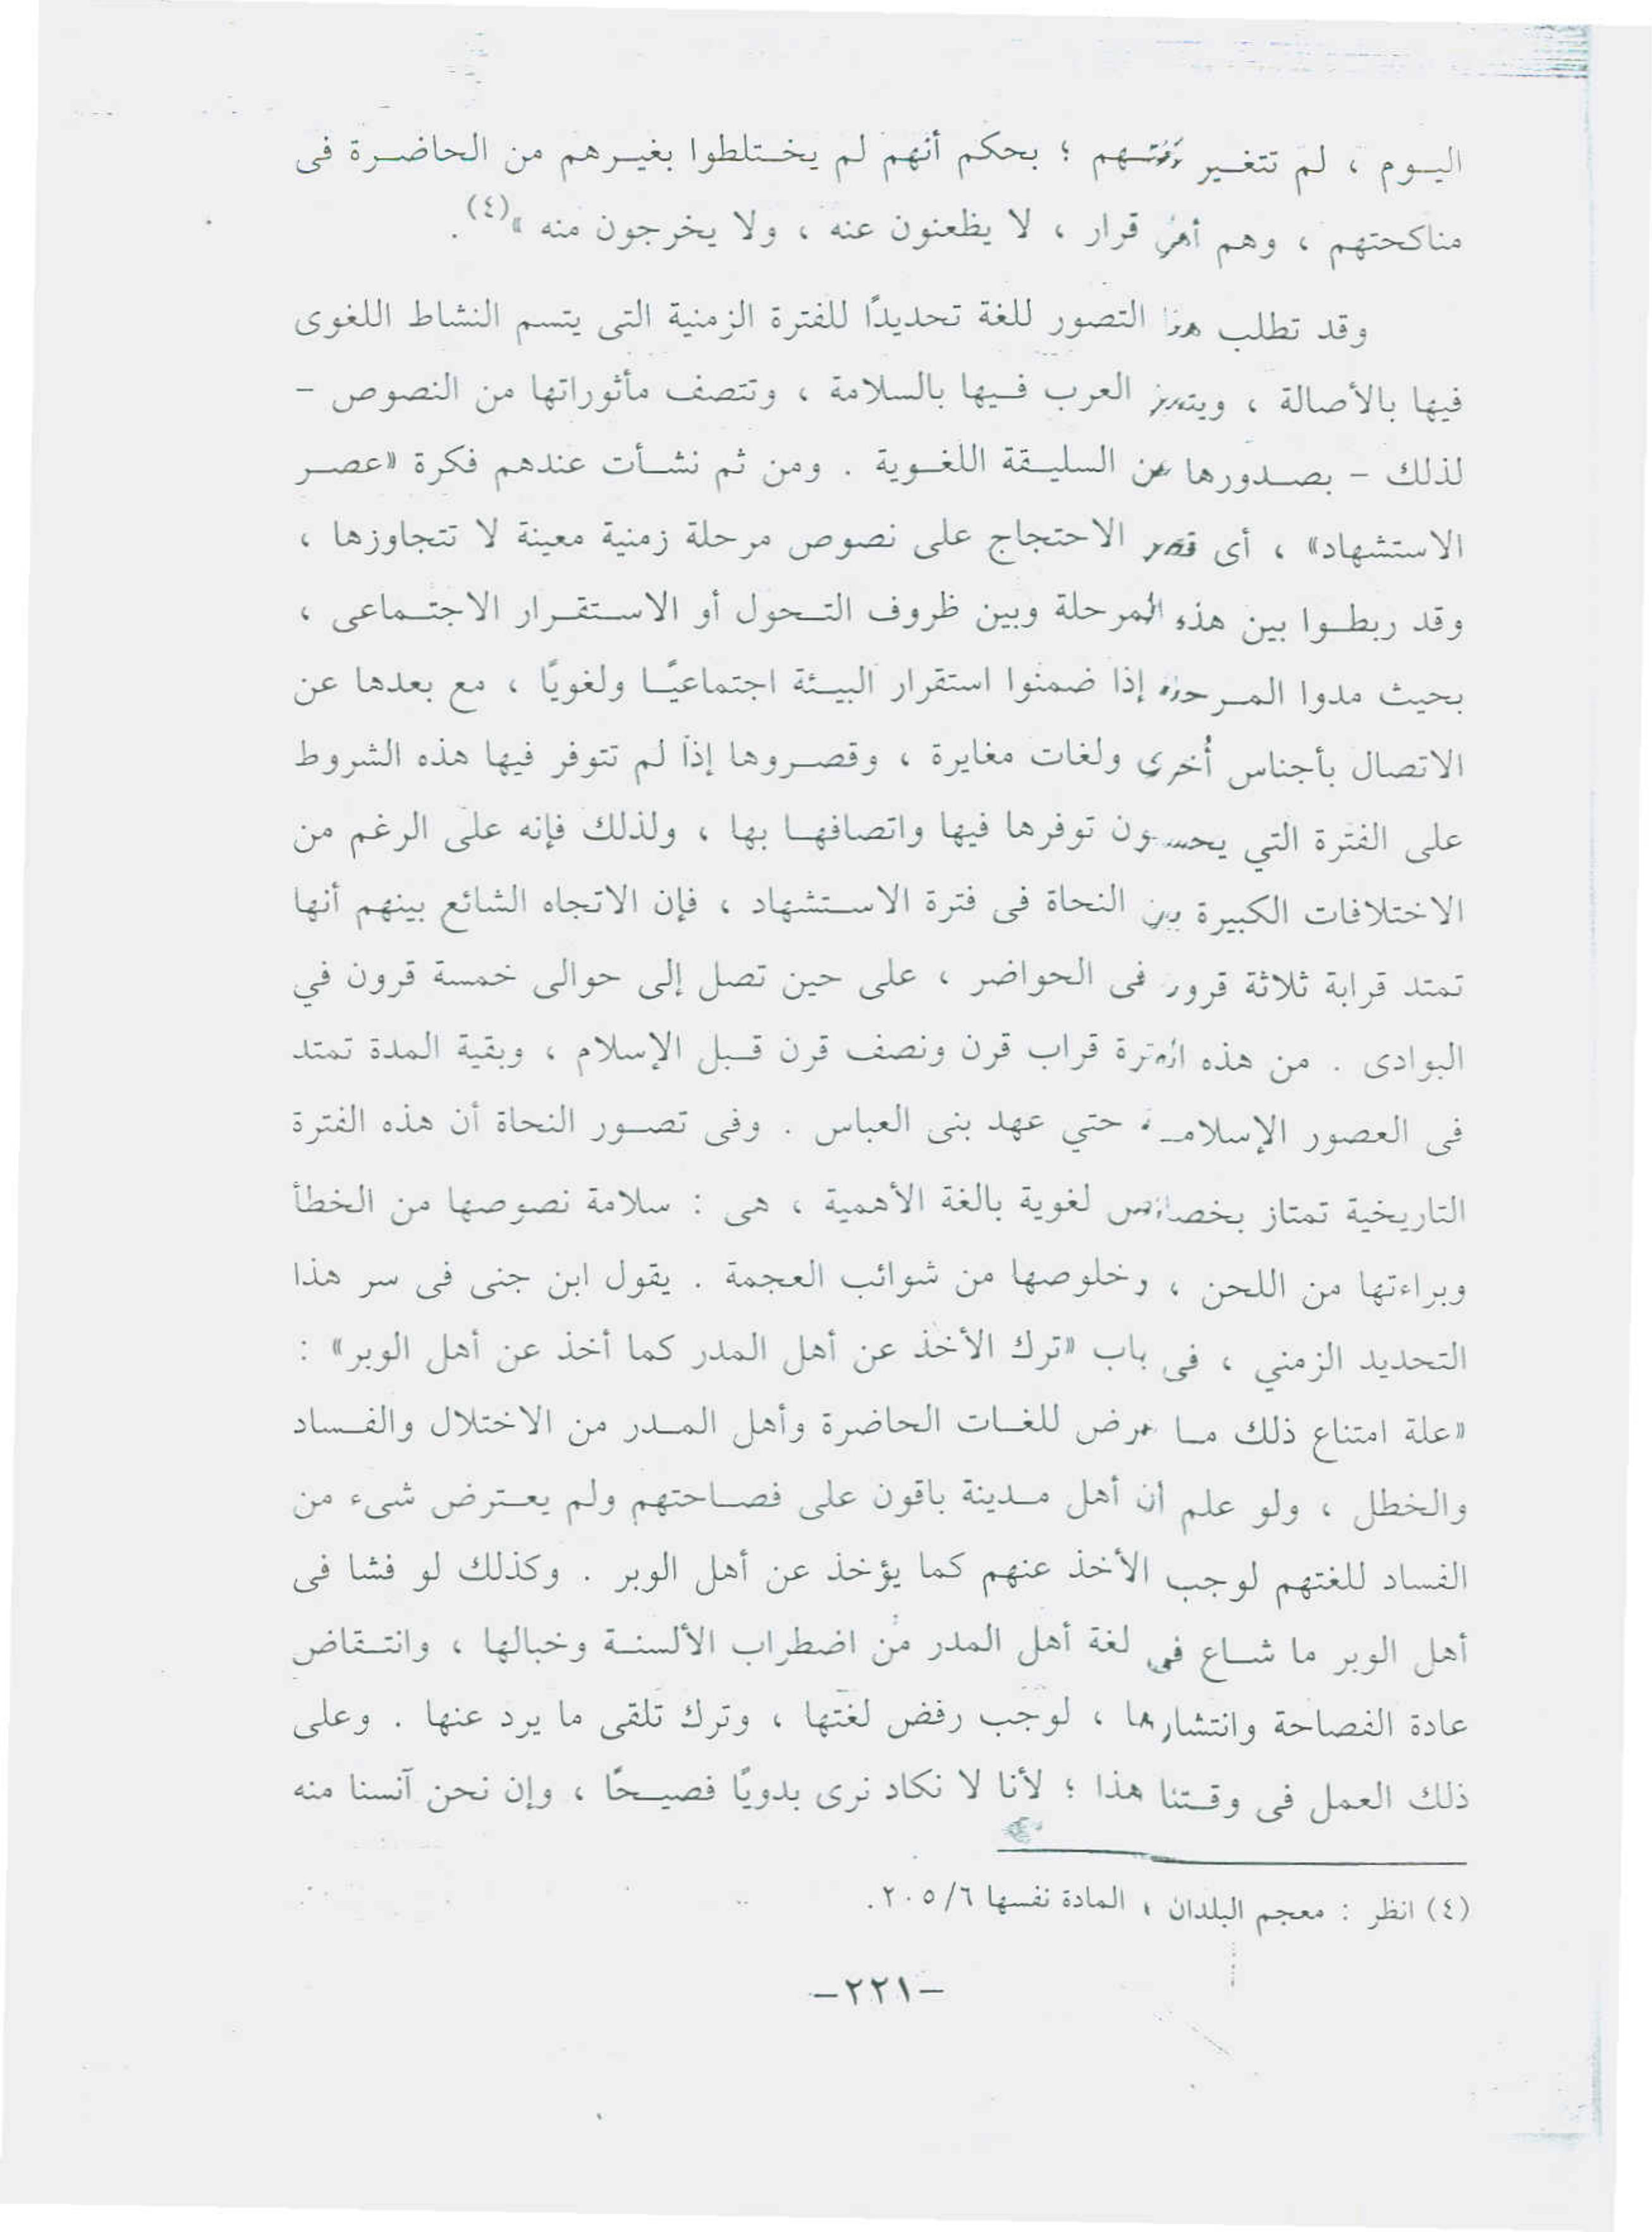 اليوم ، لم تتغير لغتهم ؛ بحكم أنهم لم يختلطوا بغيرهم من الحاضرة فى
مناكحتهم ، وهم أهل قرار ، لا يظعنون عنه ، ولا يخرجون منه »(٤).
وقد تطلب هذا التصور للغة تحديدًا للفترة الزمنية التى يتسم النشاط اللغوى
فيها بالأصالة ، ويتميز العرب فيها بالسلامة ، وتتصف مأثوراتها من النصوص –
لذلك – بصدورها عن السليقة اللغوية . ومن ثم نشأت عندهم فكرة «عصر
الاستشهاد» ، أى قصر الاحتجاج على نصوص مرحلة زمنية معينة لا تتجاوزها ،
وقد ربطوا بين هذه المرحلة وبين ظروف التحول أو الاستقرار الاجتماعى ،
بحيث مدوا المرحلة إذا ضمنوا استقرار البيئة اجتماعيًا ولغويًا ، مع بعدها عن
الاتصال بأجناس أُخرى ولغات مغايرة ، وقصروها إذا لم تتوفر فيها هذه الشروط
على الفترة التي يحسون توفرها فيها واتصافها بها ، ولذلك فإنه على الرغم من
الاختلافات الكبيرة بين النحاة فى فترة الاستشهاد ، فإن الاتجاه الشائع بينهم أنها
تمتد قرابة ثلاثة قرون فى الحواضر ، على حين تصل إلى حوالى خمسة قرون في
البوادى . من هذه الفترة قراب قرن ونصف قرن قبل الإسلام ، وبقية المدة تمتد
فى العصور الإسلامية حتي عهد بنى العباس . وفى تصور النحاة أن هذه الفترة
التاريخية تمتاز بخصائص لغوية بالغة الأهمية ، هى : سلامة نصوصها من الخطأ
وبراءتها من اللحن ، وخلوصها من شوائب العجمة . يقول ابن جنى فى سر هذا
التحديد الزمني ، فى باب «ترك الأخذ عن أهل المدر كما أخذ عن أهل الوبر» :
«علة امتناع ذلك ما عرض للغات الحاضرة وأهل المدر من الاختلال والفساد
والخطل ، ولو علم أن أهل مدينة باقون على فصاحتهم ولم يعترض شىء من
الفساد للغتهم لوجب الأخذ عنهم كما يؤخذ عن أهل الوبر . وكذلك لو فشا فى
أهل الوبر ما شاع فى لغة أهل المدر من اضطراب الألسنة وخبالها ، وانتقاض
عادة الفصاحة وانتشارها ، لوجب رفض لغتها ، وترك تلقى ما يرد عنها . وعلى
ذلك العمل فى وقتنا هذا ؛ لأنا لا نكاد نرى بدويًا فصيحًا ، وإن نحن آنسنا منه
(٤) انظر : معجم البلدان ، المادة نفسها ٢٠٥/٦.
–٢٢١–